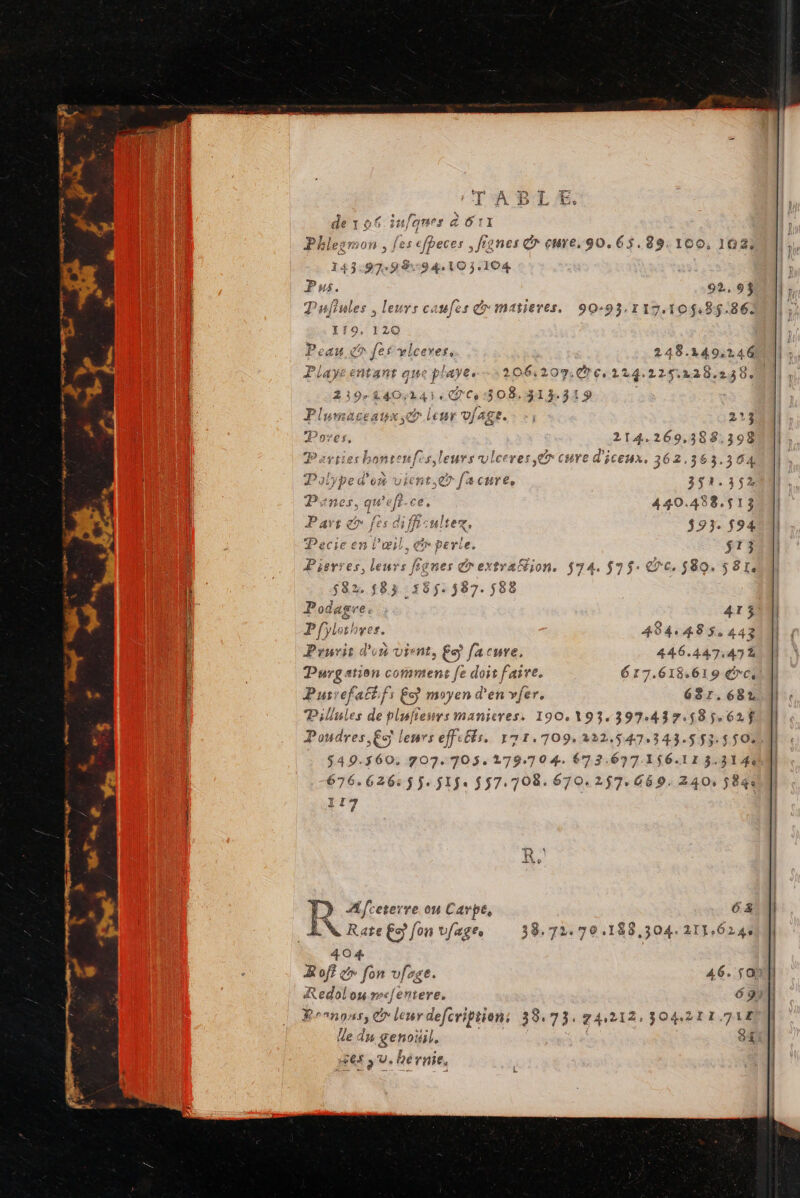 TABLE.
de 106 iuſques à 611
Phlegmon, ſes eſpeces, ſignes & cure. 90. 65. 89. 100. 102.
143. 97. 98. 94. 103. 104
Pus. 92. 93
Puſtules, leurs cauſes & matieres. 90. 93. 117. 105. 85. 86.
119. 120
Peau & ſes vlceres. 248. 249. 246
Playe entant que playe. 206. 207. &c. 224. 225. 228. 238.
239. 240. 241. &c. 308. 313. 319
Plumaceaux, & leur vſage. 213
Pores. 214. 269. 388. 398
Parties honteuſes, leurs vlceres, & cure d'iceux. 362. 363. 364
Polype d'où vient, & ſa cure. 351. 352
Panes, qu'eſt-ce. 440. 438. 513
Part & ſes difficultez. 593. 594
Pecie en l'œil, & perle. 513
Pierres, leurs ſignes & extraction. 574. 575. &c. 580. 581.
582. 583. 585. 587. 588
Podagre. 413
Pſylothres. 484. 485. 443
Prurit d'où vient, & ſa cure. 446. 447. 452
Purgation comment ſe doit faire. 617. 618. 619 &c.
Putrefactifs & moyen d'en vſer. 681. 682
Pillules de pluſieurs manieres. 190. 193. 397. 437. 585. 625
Poudres, & leurs effects. 171. 709. 222. 547. 343. 553. 550.
549. 560. 707. 705. 279. 704. 673. 677. 156. 113. 314.
676. 626. 55. 515. 557. 708. 670. 257. 669. 240. 584.
117
R.
RAſceterre ou Carpe, 68
Rate & ſon vſage, 38. 72. 70. 188. 304. 211. 624.
404
Roſt & ſon vſage. 46. 50
Redol ou meſentere. 69
Rongnons, & leur deſcription. 38. 73. 74. 212. 304. 211. 71
lle du genoüil. 84
v. hernie,